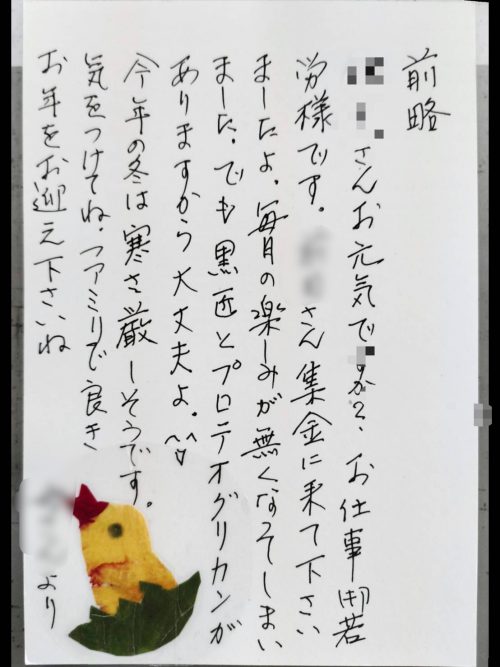 前略
さんお元気ですか?、お仕事御苦
労様です。さん集金に来て下さい
ましたよ。毎月の楽しみが無くなってしまい
ました。でも黒とプロテオグリカンが
ありますから大丈夫よ。^^
今年の冬は寒さ厳しそうです。
気をつけてね。ファミリで良き
お年をお迎え下さいね
より